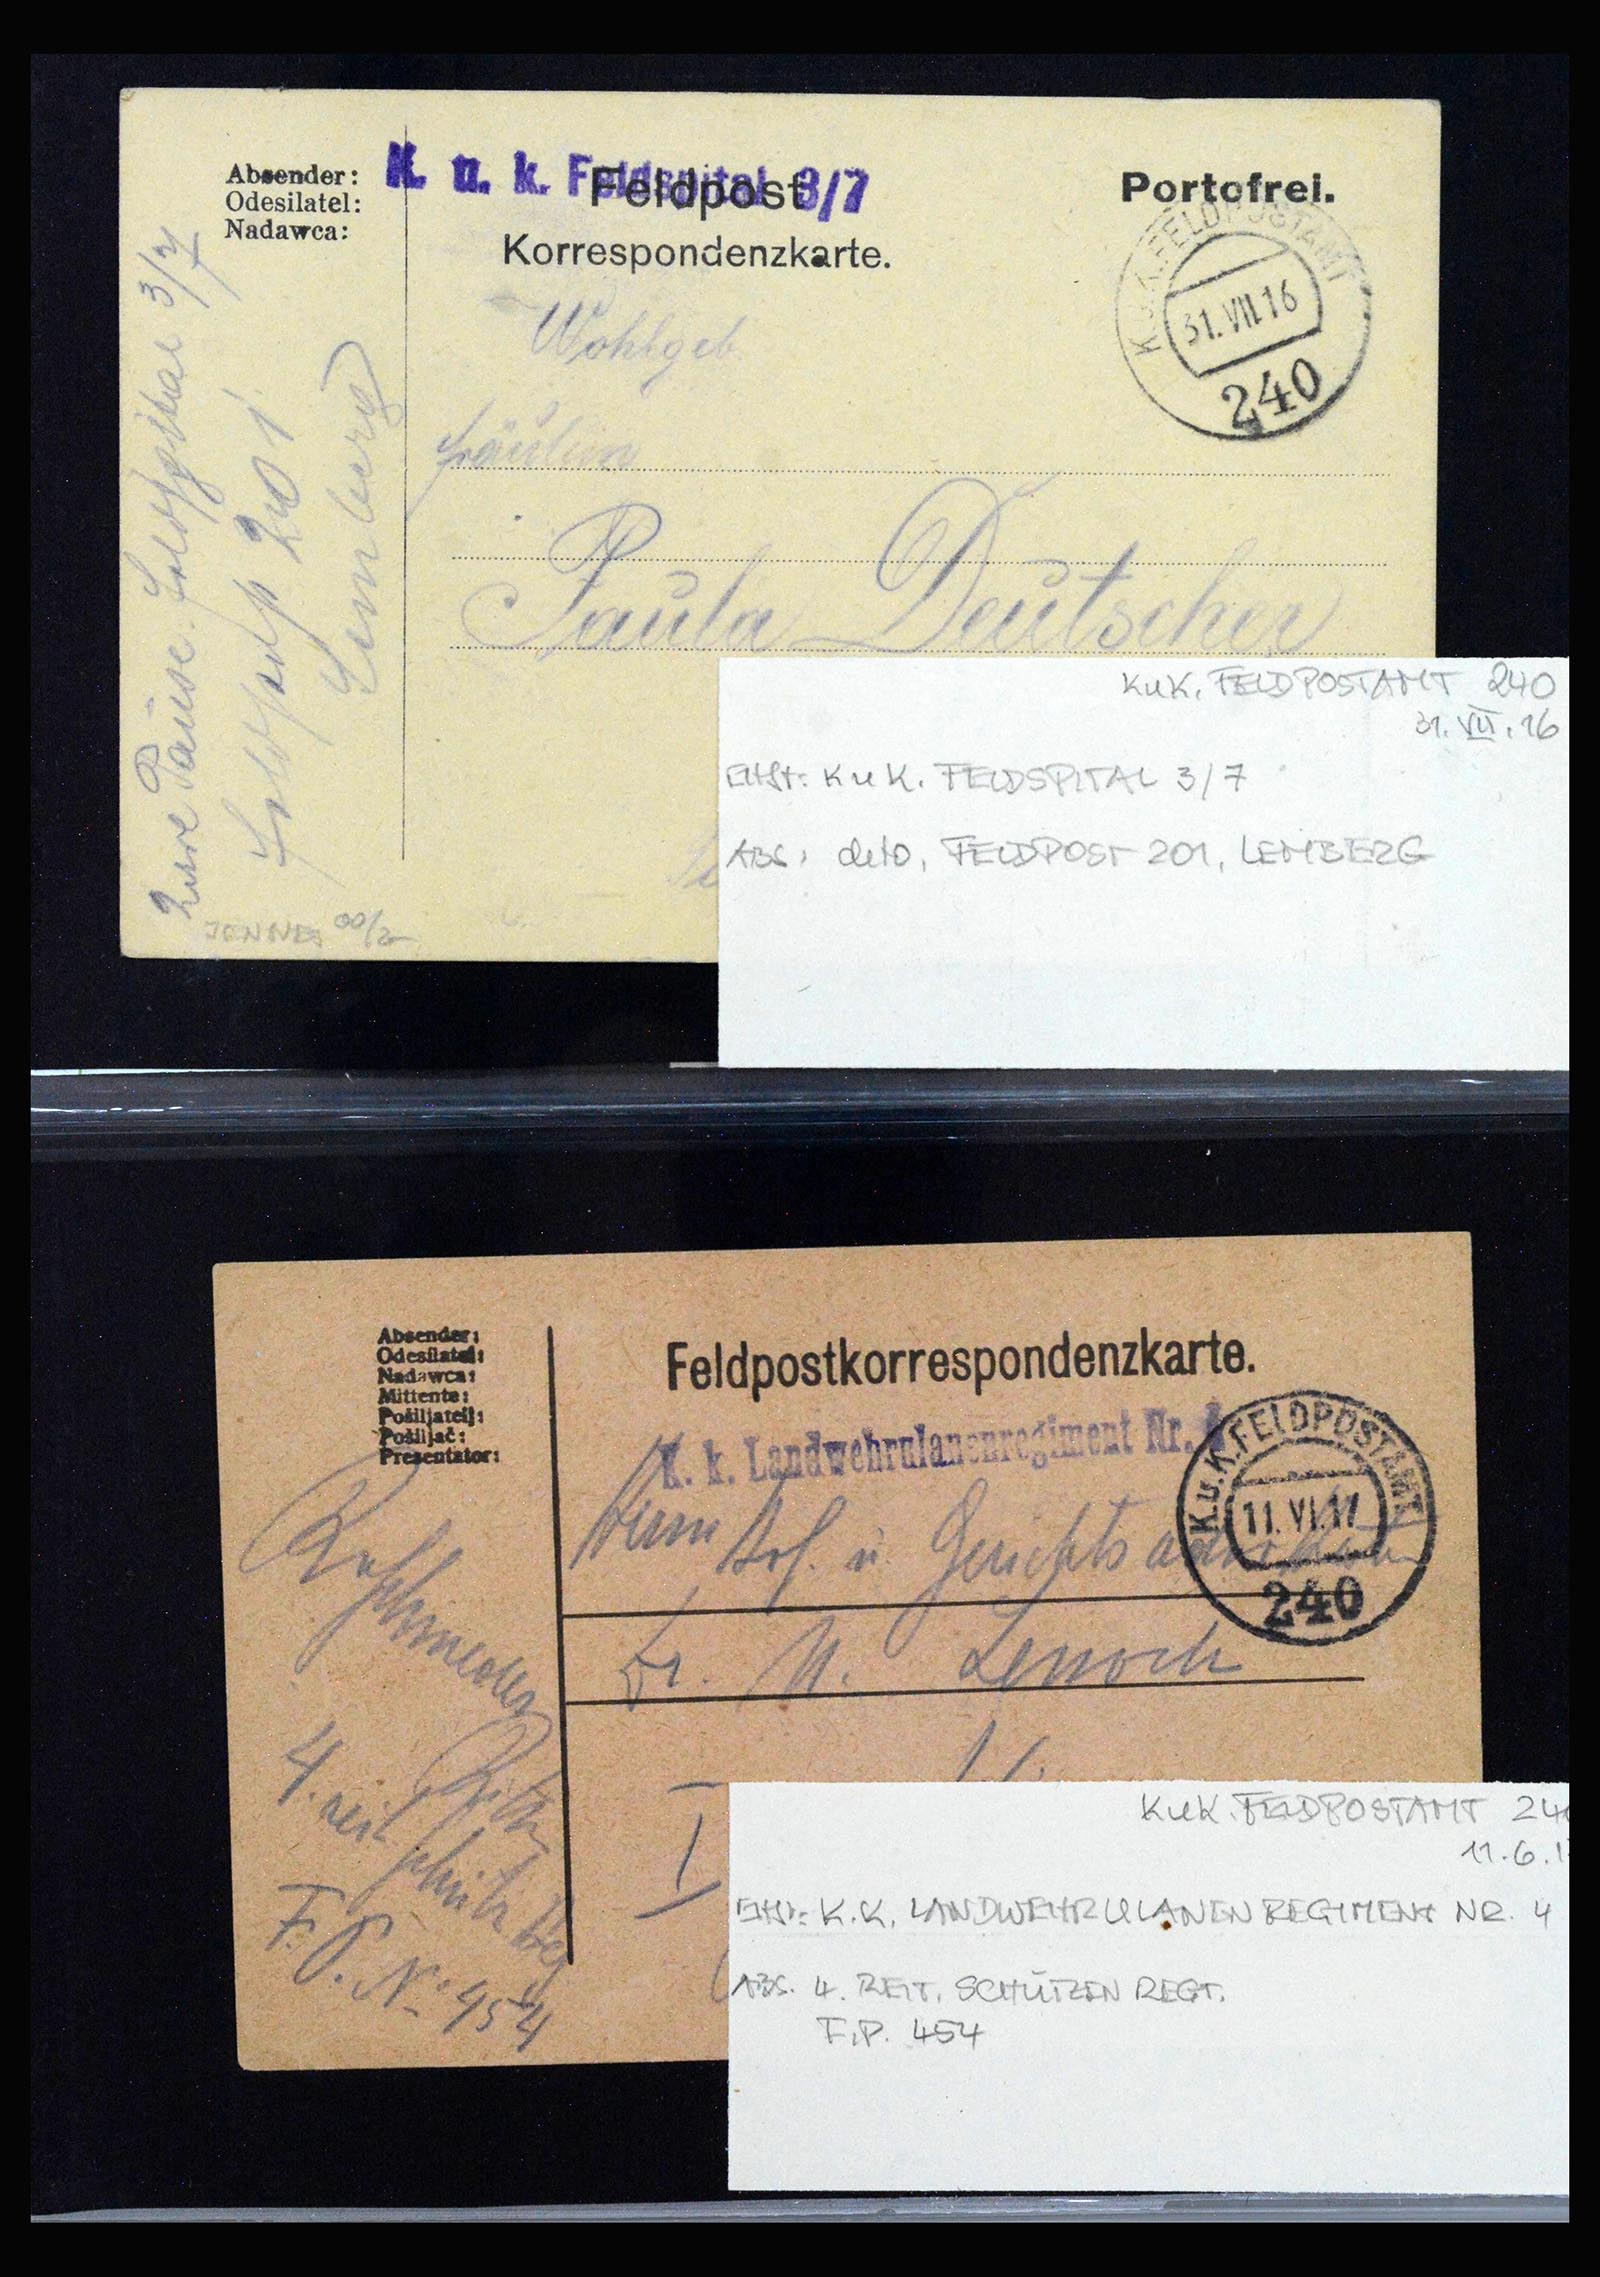 Absender:
Odesilatel:
Nadawca:
K. u. k. Feldspital 3/7
Feldpost
Korrespondenzkarte.
Portofrei.
K.u.K.FELDPOSTAMT
31.VII.16
240
Wohlgeb.
Fräulein
Paula Deutscher
Feldspital 3/7
Feldpost 201
Lemberg
KuK. FELDPOSTAMT 240
31. VII. 16
KuK. FELDSPITAL 3/7
ABS: deto, FELDPOST 201, LEMBERG
Absender:
Odesilatel:
Nadawca:
Mittente:
Pošiljatelj:
Pošiljač:
Presentator:
Feldpostkorrespondenzkarte.
K. k. Landwehrulanenregiment Nr.
K.u.K.FELDPOSTAMT
11.VI.17
240
Herrn Hof. u. Gerichts
Dr. Lenoch
I
4.
F. P. No 454
KuK. FELDPOSTAMT 24
11.6.1
K.K. LANDWEHRULANENREGIMENT NR. 4
ABS. 4. REIT. SCHÜTZEN REGT.
F.P. 454